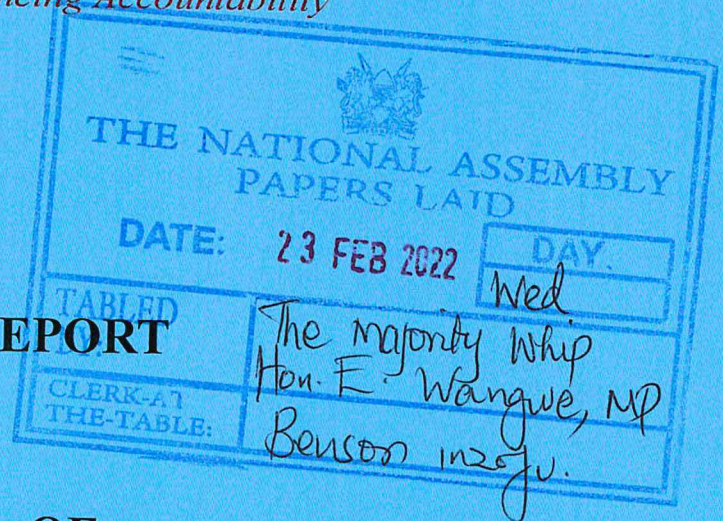 Accountability
THE NATIONAL ASSEMBLY
PAPERS LAID
DATE: 23 FEB 2022 DAY.
Wed
TABLED
The Majority Whip
EPORT
Hon. E. Wangwe, MP
CLERK-AT
THE-TABLE:
Benson Inzofu.
OF